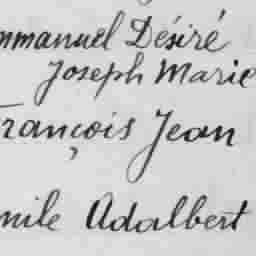 mmanuel Désiré
Joseph Marie
François Jean
mile Adalbert